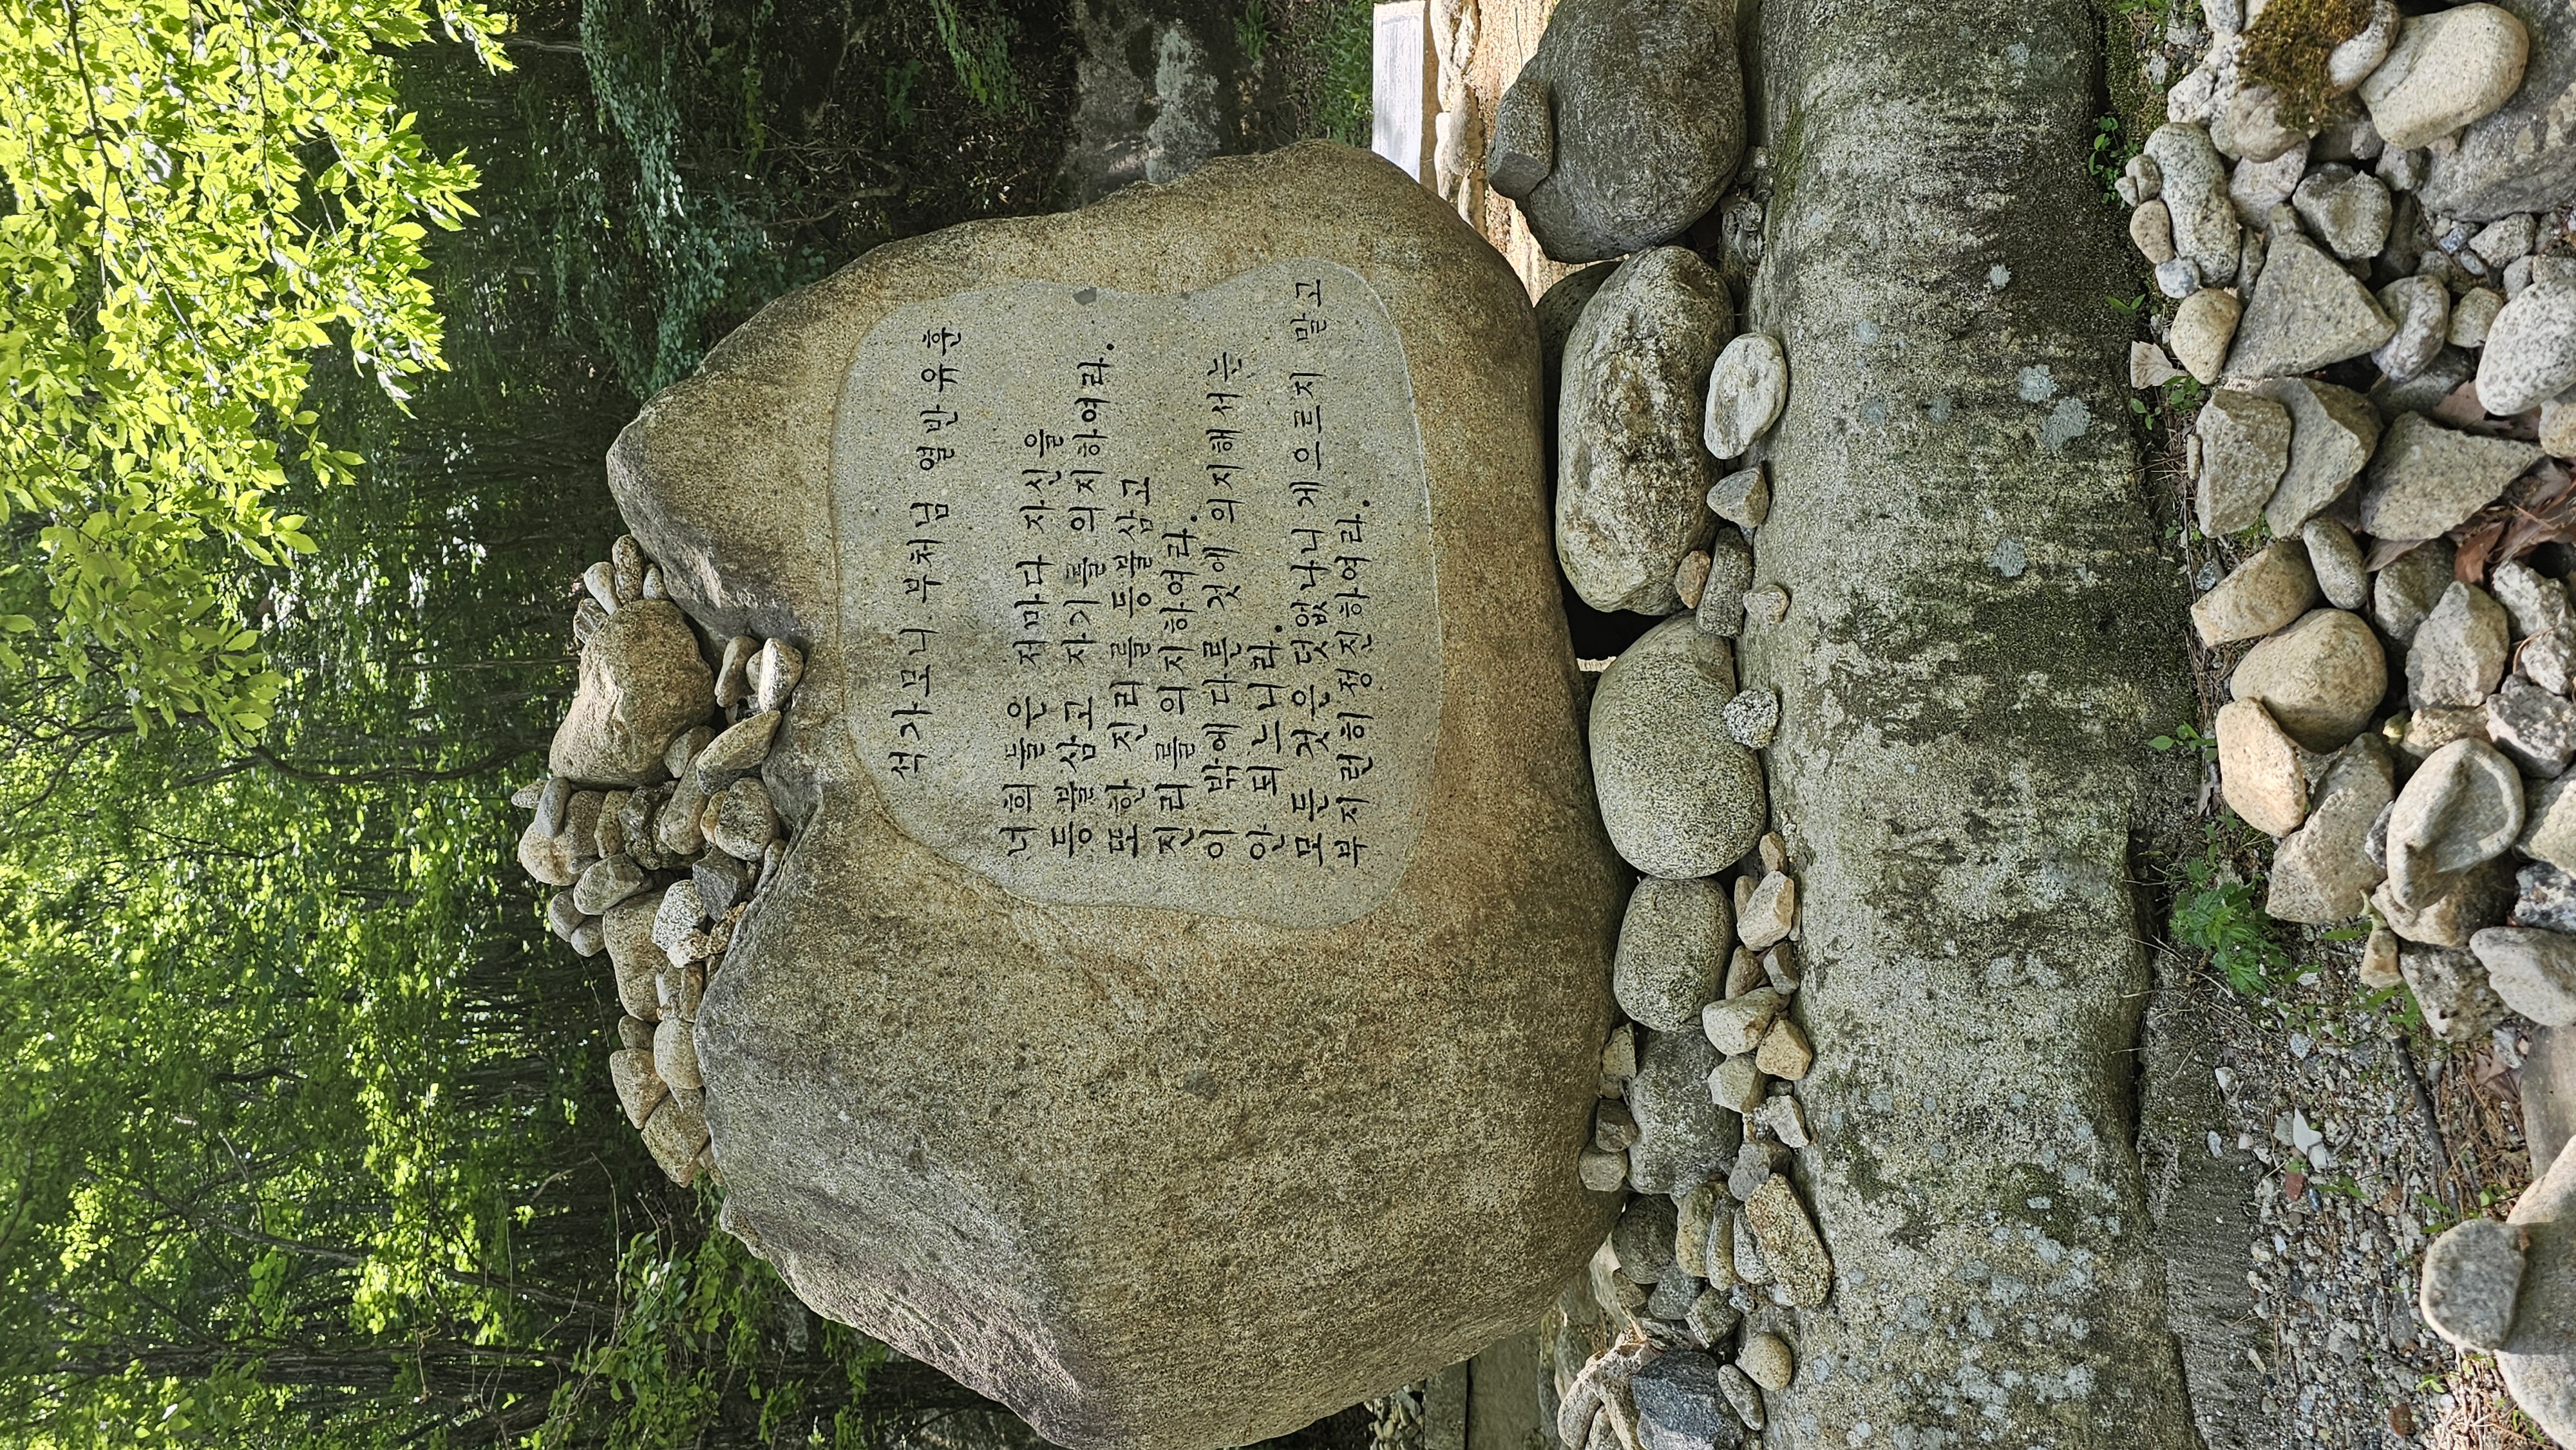 석가모니 부처님 열반 유훈
너희들은 저마다 자신을
등불삼고 자기를 의지하여라.
또한 진리를 등불삼고
진리를 의지하여라.
이 밖에 다른 것에 의지해서는
안되느니라.
모든 것은 덧없나니 게으르지 말고
부지런히 정진하여라.